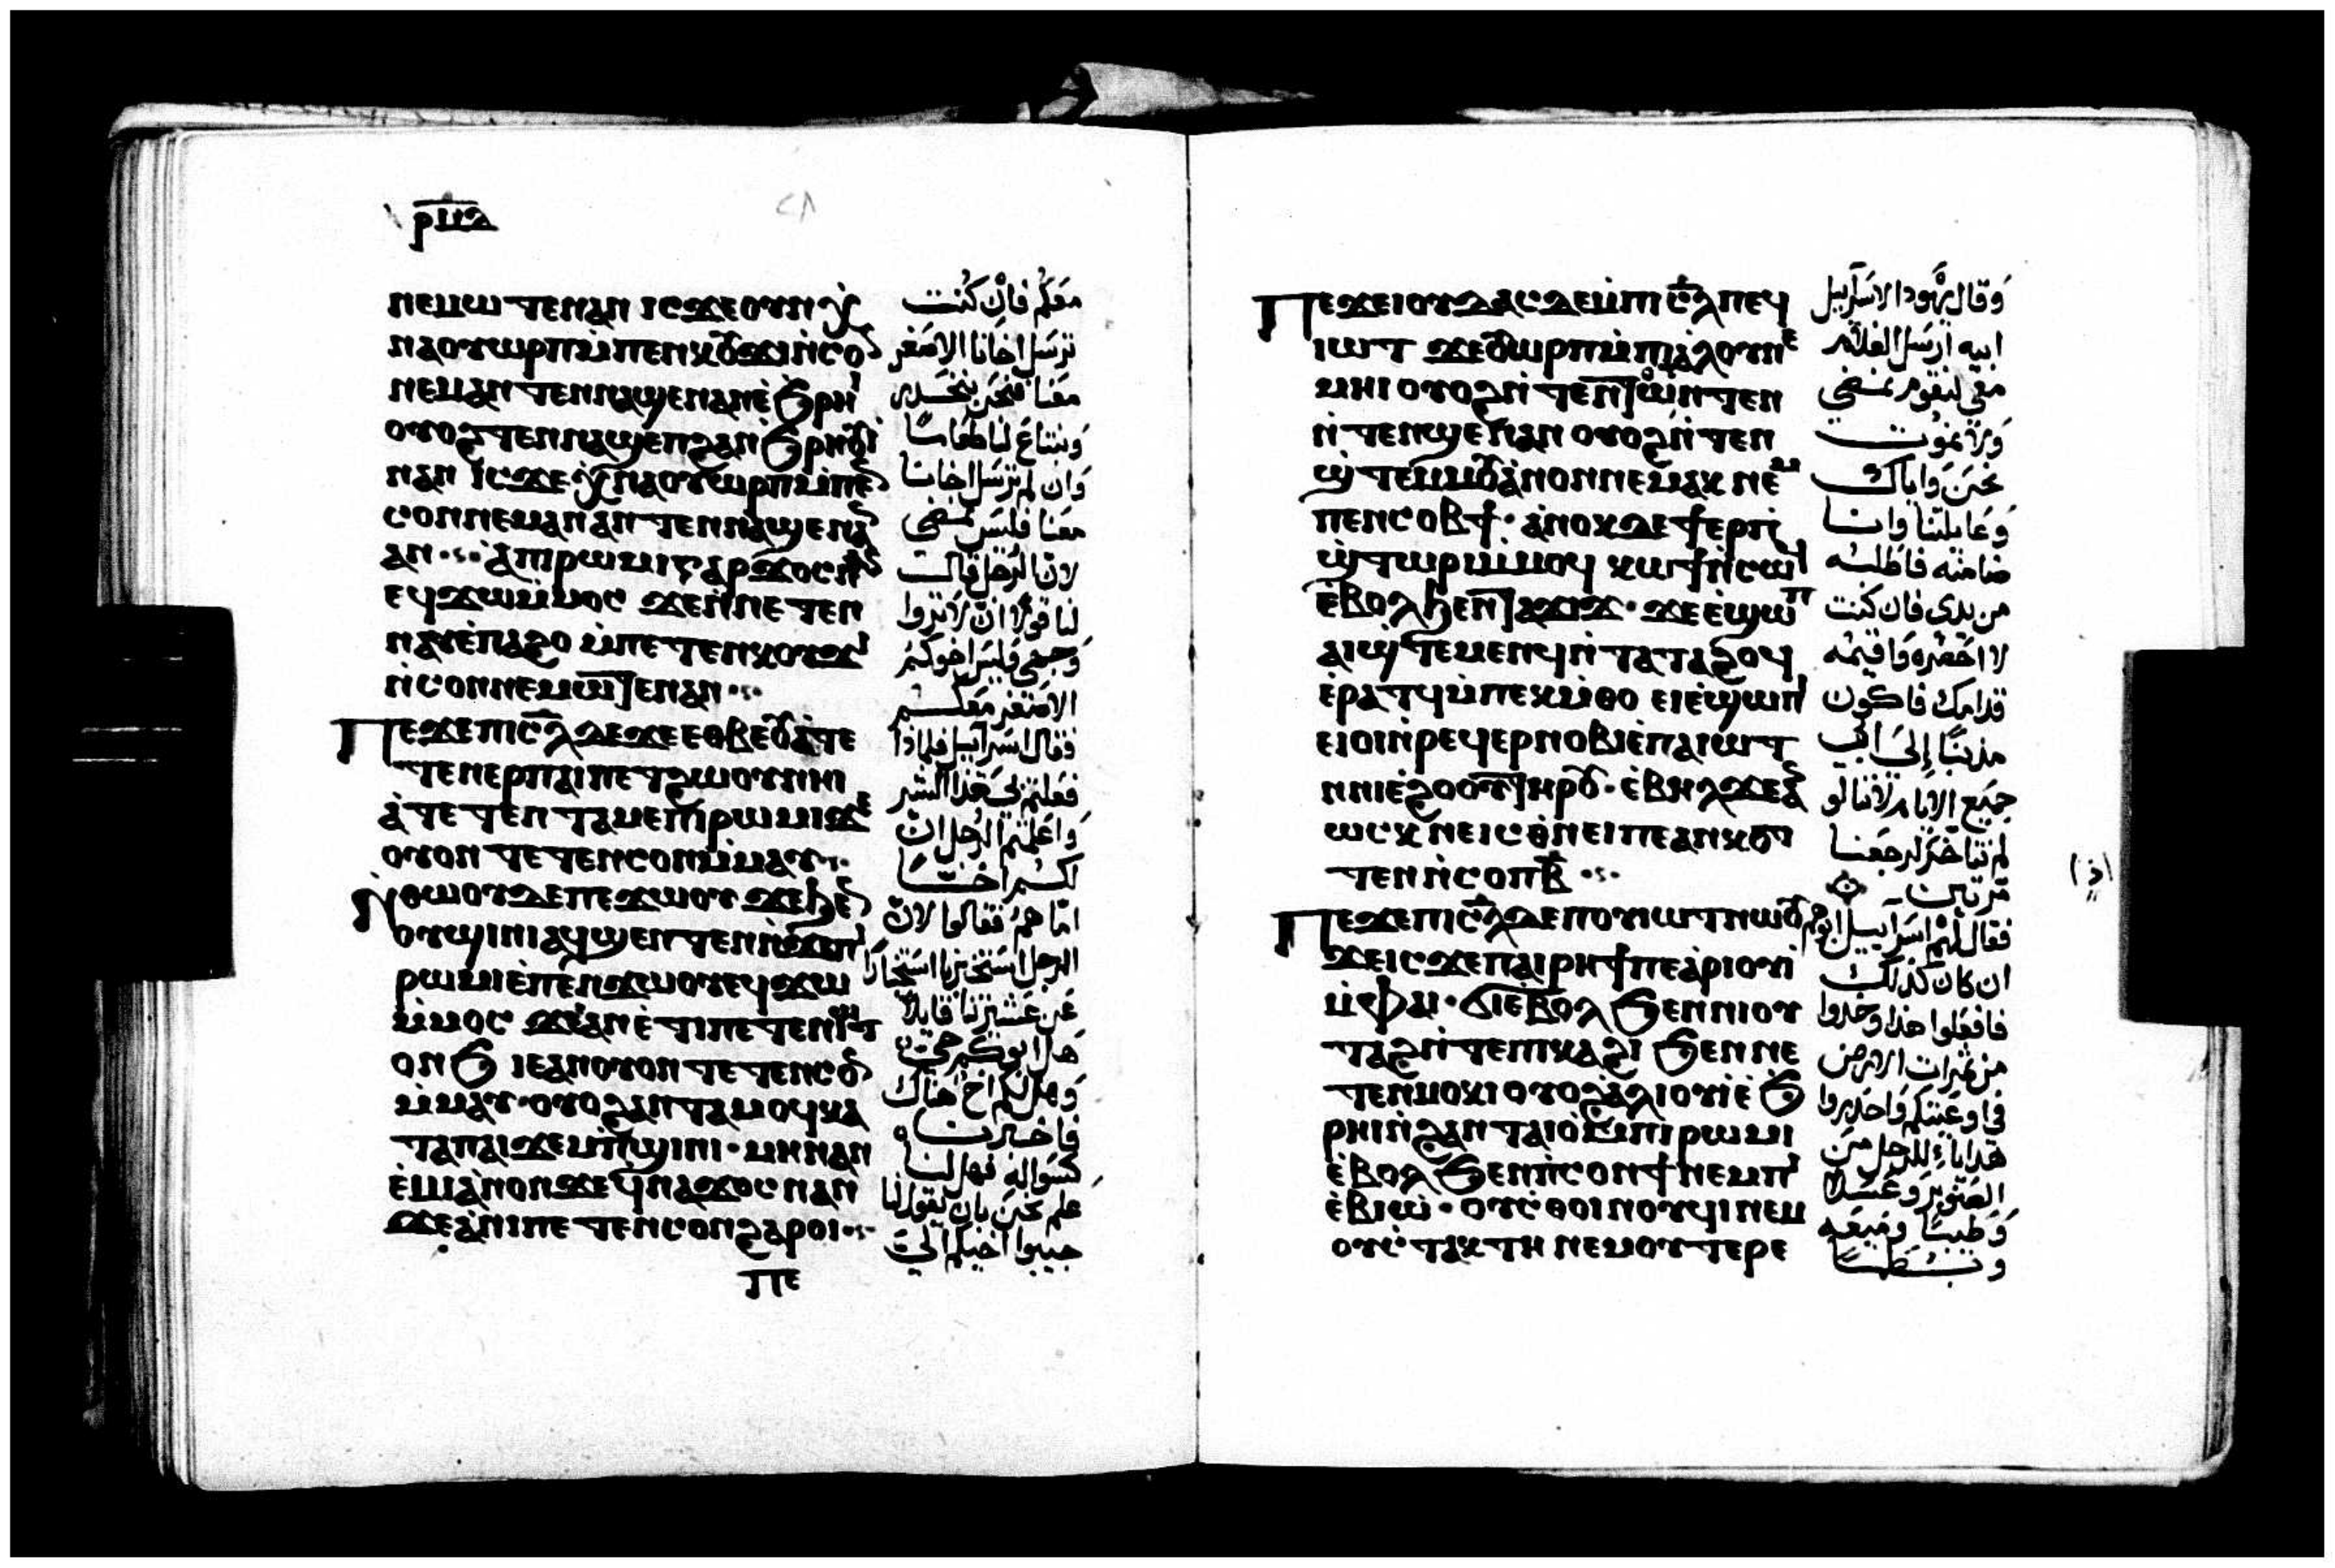 ⲣⲙⲁ
ⲛⲉⲙⲱⲧⲉⲛⲁⲛ ⲓⲥϫⲉⲟⲩⲛ
ⲛⲁⲟⲩⲱⲣⲡⲙ̇ⲡⲉⲛⲕⲟⲩϫⲓⲛ̇ⲥⲟ
ⲛⲉⲙⲁⲛ ⲧⲉⲛⲛⲁϣⲉⲛⲁⲛⲉ̇ϧⲣⲏ
ⲟⲩⲟϩⲧⲉⲛⲛⲁϣⲉⲡϩⲁⲛϧⲣⲏⲟⲩⲓ
ⲛⲁⲛ ⲓⲥϫⲉ ⲛⲁⲟⲩⲱⲣⲡⲙ̇ⲡⲉ
ⲥⲟⲛⲛⲉⲙⲁⲛⲁⲛ ⲧⲉⲛⲛⲁϣⲉⲛⲁ
ⲁⲛ ⲁ̇ⲡⲓⲣⲱⲙⲓⲅⲁⲣϫⲟⲥⲛ
ⲉϥϫⲱⲙ̇ⲙⲟⲥ ϫⲉⲛ̇ⲛⲉⲧⲉⲛ
ⲛⲁⲩⲉ̇ⲡⲁϩⲟ ⲙ̇ⲡⲉⲧⲉⲛⲕⲟⲩϫ
ⲛ̇ⲥⲟⲛⲛⲉⲙⲱⲧⲉⲛⲁⲛ
ⲡⲉϫⲉⲡⲓⲥ̅ⲗ̅ⲇⲉϫⲉⲉⲑⲃⲉⲟⲩⲁ̇ⲧⲉ
ⲧⲉⲛⲉⲣⲡⲁⲓⲡⲉⲧϩⲱⲟⲩⲛⲏⲓ
ⲁ̇ⲧⲉⲧⲉⲛⲧⲁⲙⲉⲡⲓⲣⲱⲙⲓϫⲉ
ⲟⲩⲟⲛⲧⲉⲧⲉⲛⲥⲟⲛⲙ̇ⲙⲁⲩ
ⲛ̇ⲑⲱⲟⲩⲇⲉⲡⲉϫⲱⲟⲩ ϫⲉϧⲉ
ⲟⲩϣⲓⲛⲓⲁϥϣⲉⲛⲧⲉⲛⲛ̇ϫⲉⲡ
ⲣⲱⲙⲓⲉ̇ⲡⲉⲛϫⲱⲟⲩⲉϥϫⲱ
ⲙ̇ⲙⲟⲥ ϫⲉⲁⲛⲉ̇ⲧⲓⲡⲉⲧⲉⲛⲓⲱⲧ
ⲟⲛϧ ⲓⲉⲁⲛⲟⲩⲟⲛⲧⲉⲧⲉⲛⲥⲟ
ⲙ̇ⲙⲁⲩ·ⲟⲩⲟϩⲁⲛⲧⲁⲙⲟϥⲕⲁ
ⲧⲁⲡⲁⲓϫⲉⲙⲡ̇ϣⲓⲛⲓ·ⲙⲏⲛⲁⲛ
ⲉ̇ⲙⲓⲁ̇ⲛⲟⲛϫⲉϥⲛⲁϫⲟⲥⲛⲁⲛ
ϫⲉⲁ̇ⲛⲓⲡⲉⲧⲉⲛⲥⲟⲛϩⲁⲣⲟⲓ
ⲡⲉ
معكم فان كنت
ترسل اخانا الاصغر
معنا فنحن ننحدر
ونبتاع لنا طعاما
وان لم ترسل اخانا
معنا فليس نمضي
لان الرجل قال
لنا قولا ان لا تروا
وجهي وليس اخوكم
الاصغر معكم
فقال اسرآييل فلماذا
فعلتم بي هذا الشر
واعلمتم الرجل ان
لكم اخا
اما هم فقالوا لان
الرجل استخبرنا استخبارا
عن عشيرتنا قايلا
هل ابوكم حي
وهل لكم اخ هناك
فاخبرناه
كسواله فهل لنا
علم نحن بان يقول لنا
جيبوا اخيكم الي
ⲡⲉϫⲉⲓⲟⲩⲇⲁⲥⲇⲉⲙ̇ⲡⲓⲥ̅ⲗ̅ⲡⲉϥ
ⲓⲱⲧ ϫⲉⲟⲩⲱⲣⲡⲙ̇ⲡⲓⲁ̇ⲗⲟⲩⲛⲉ
ⲙⲏⲓ ⲟⲩⲟϩⲛ̇ⲧⲉⲛⲧⲱⲛⲧⲉⲛ
ⲛ̇ⲧⲉⲛϣⲉⲛⲁⲛ ⲟⲩⲟϩⲛ̇ⲧⲉⲛ
ϣ̇ⲧⲉⲙⲙⲟⲩⲁ̇ⲛⲟⲛⲛⲉⲙⲁⲕ ⲛⲉⲙ
ⲡⲉⲛⲥⲟⲃϯ· ⲁ̇ⲛⲟⲕⲇⲉϯⲉⲣⲡ
ϣ̇ⲧⲱⲣⲓⲙ̇ⲙⲟϥ ⲕⲱϯⲛ̇ⲥⲱ
ⲉ̇ⲃⲟⲗϧⲉⲛⲧⲁϫⲓϫ· ϫⲉⲉ̇ϣⲱⲡ
ⲁⲓϣ̇ⲧⲉⲙⲉⲛϥⲛ̇ⲧⲁⲧⲁϩⲟϥ
ⲉ̇ⲣⲁⲧϥⲙ̇ⲡⲉⲕⲙ̇ⲑⲟ ⲉⲓⲉ̇ϣⲱⲡ
ⲉⲓⲟⲓⲛ̇ⲣⲉϥⲉⲣⲛⲟⲃⲓⲉ̇ⲡⲁⲓⲱⲧ
ⲛⲛⲓⲉ̇ϩⲟⲟⲩⲧⲏⲣⲟⲩ· ⲉ̇ⲃⲏⲗϫⲉⲁ
ⲱⲥⲕ ⲛⲉⲓⲥⲑ̇ⲛⲉⲓⲡⲉⲁⲛⲕⲟⲧ
ⲧⲉⲛ ⲛ̇ⲥⲟⲡⲃ̅
ⲡⲉϫⲉⲡⲓⲥ̅ⲗ̅ⲇⲉⲡⲟⲩⲓⲱⲧⲛⲱⲟⲩ
ϫⲉⲓⲥϫⲉⲡⲁⲓⲣⲏϯⲡⲉⲁ̇ⲣⲓⲟⲩⲓ̇
ⲙ̇ⲫⲁⲓ· ϭⲓⲉ̇ⲃⲟⲗ ϧⲉⲛⲛⲓⲟⲩ
ⲧⲁϩⲛ̇ⲧⲉⲡⲓⲕⲁϩⲓ ϧⲉⲛⲛⲉ
ⲧⲉⲛⲙⲟⲕⲓ ⲟⲩⲟϩⲁ̇ⲗⲓⲟⲩⲓ̇ⲉ̇ϧ
ⲣⲏⲓⲛ̇ϩⲁⲛⲧⲁⲓⲟ̇ⲙ̇ⲡⲓⲣⲱⲙⲓ
ⲉ̇ⲃⲟⲗ ϧⲉⲛⲡⲥⲟⲛϯ ⲛⲉⲙⲡ
ⲉ̇ⲃⲓⲱ̇· ⲟⲩⲥ̇ⲑⲟⲓⲛⲟⲩϥⲓ ⲛⲉⲙ
ⲟⲩⲥ̇ⲧⲁⲕⲧⲏ ⲛⲉⲙⲟⲩⲧⲉⲣⲉ
وقال يهودا لاسرآييل
ابيه ارسل الغلام
معي لنقوم نمضي
ولا نموت
نحن واياك
وعايلتنا وانا
ضامنه فاطلبه
من يدي فان كنت
لا احضره واقيمه
قدامك فاكون
مذنبا إلى ابي
جميع الايام لاننا لو
لم نتاخر لرجعنا
مرتين
فقال لهم اسرآييل ابوهم
ان كان كذلك
فافعلوا هذا وخذوا
من ثمرات الارض
في اوعيتكم واحدروا
هدايا للرجل من
الصنوبر وعسلا
وطيبا وميعه